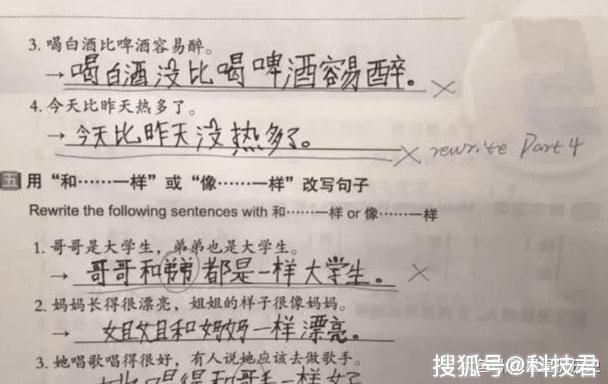 3. 喝白酒比啤酒容易醉。
→ 喝白酒没比喝啤酒容易醉。 ×
4. 今天比昨天热多了。
→ 今天比昨天没热多了。 × rewrite Part 4
五 用“和……一样”或“像……一样”改写句子
Rewrite the following sentences with 和……一样 or 像……一样
1. 哥哥是大学生，弟弟也是大学生。
→ 哥哥和弟弟都是一样大学生。 ×
2. 妈妈长得很漂亮，姐姐的样子很像妈妈。
→ 姐姐和妈妈一样漂亮。
3. 她唱歌唱得很好，有人说她应该去做歌手。
搜狐号@科技君